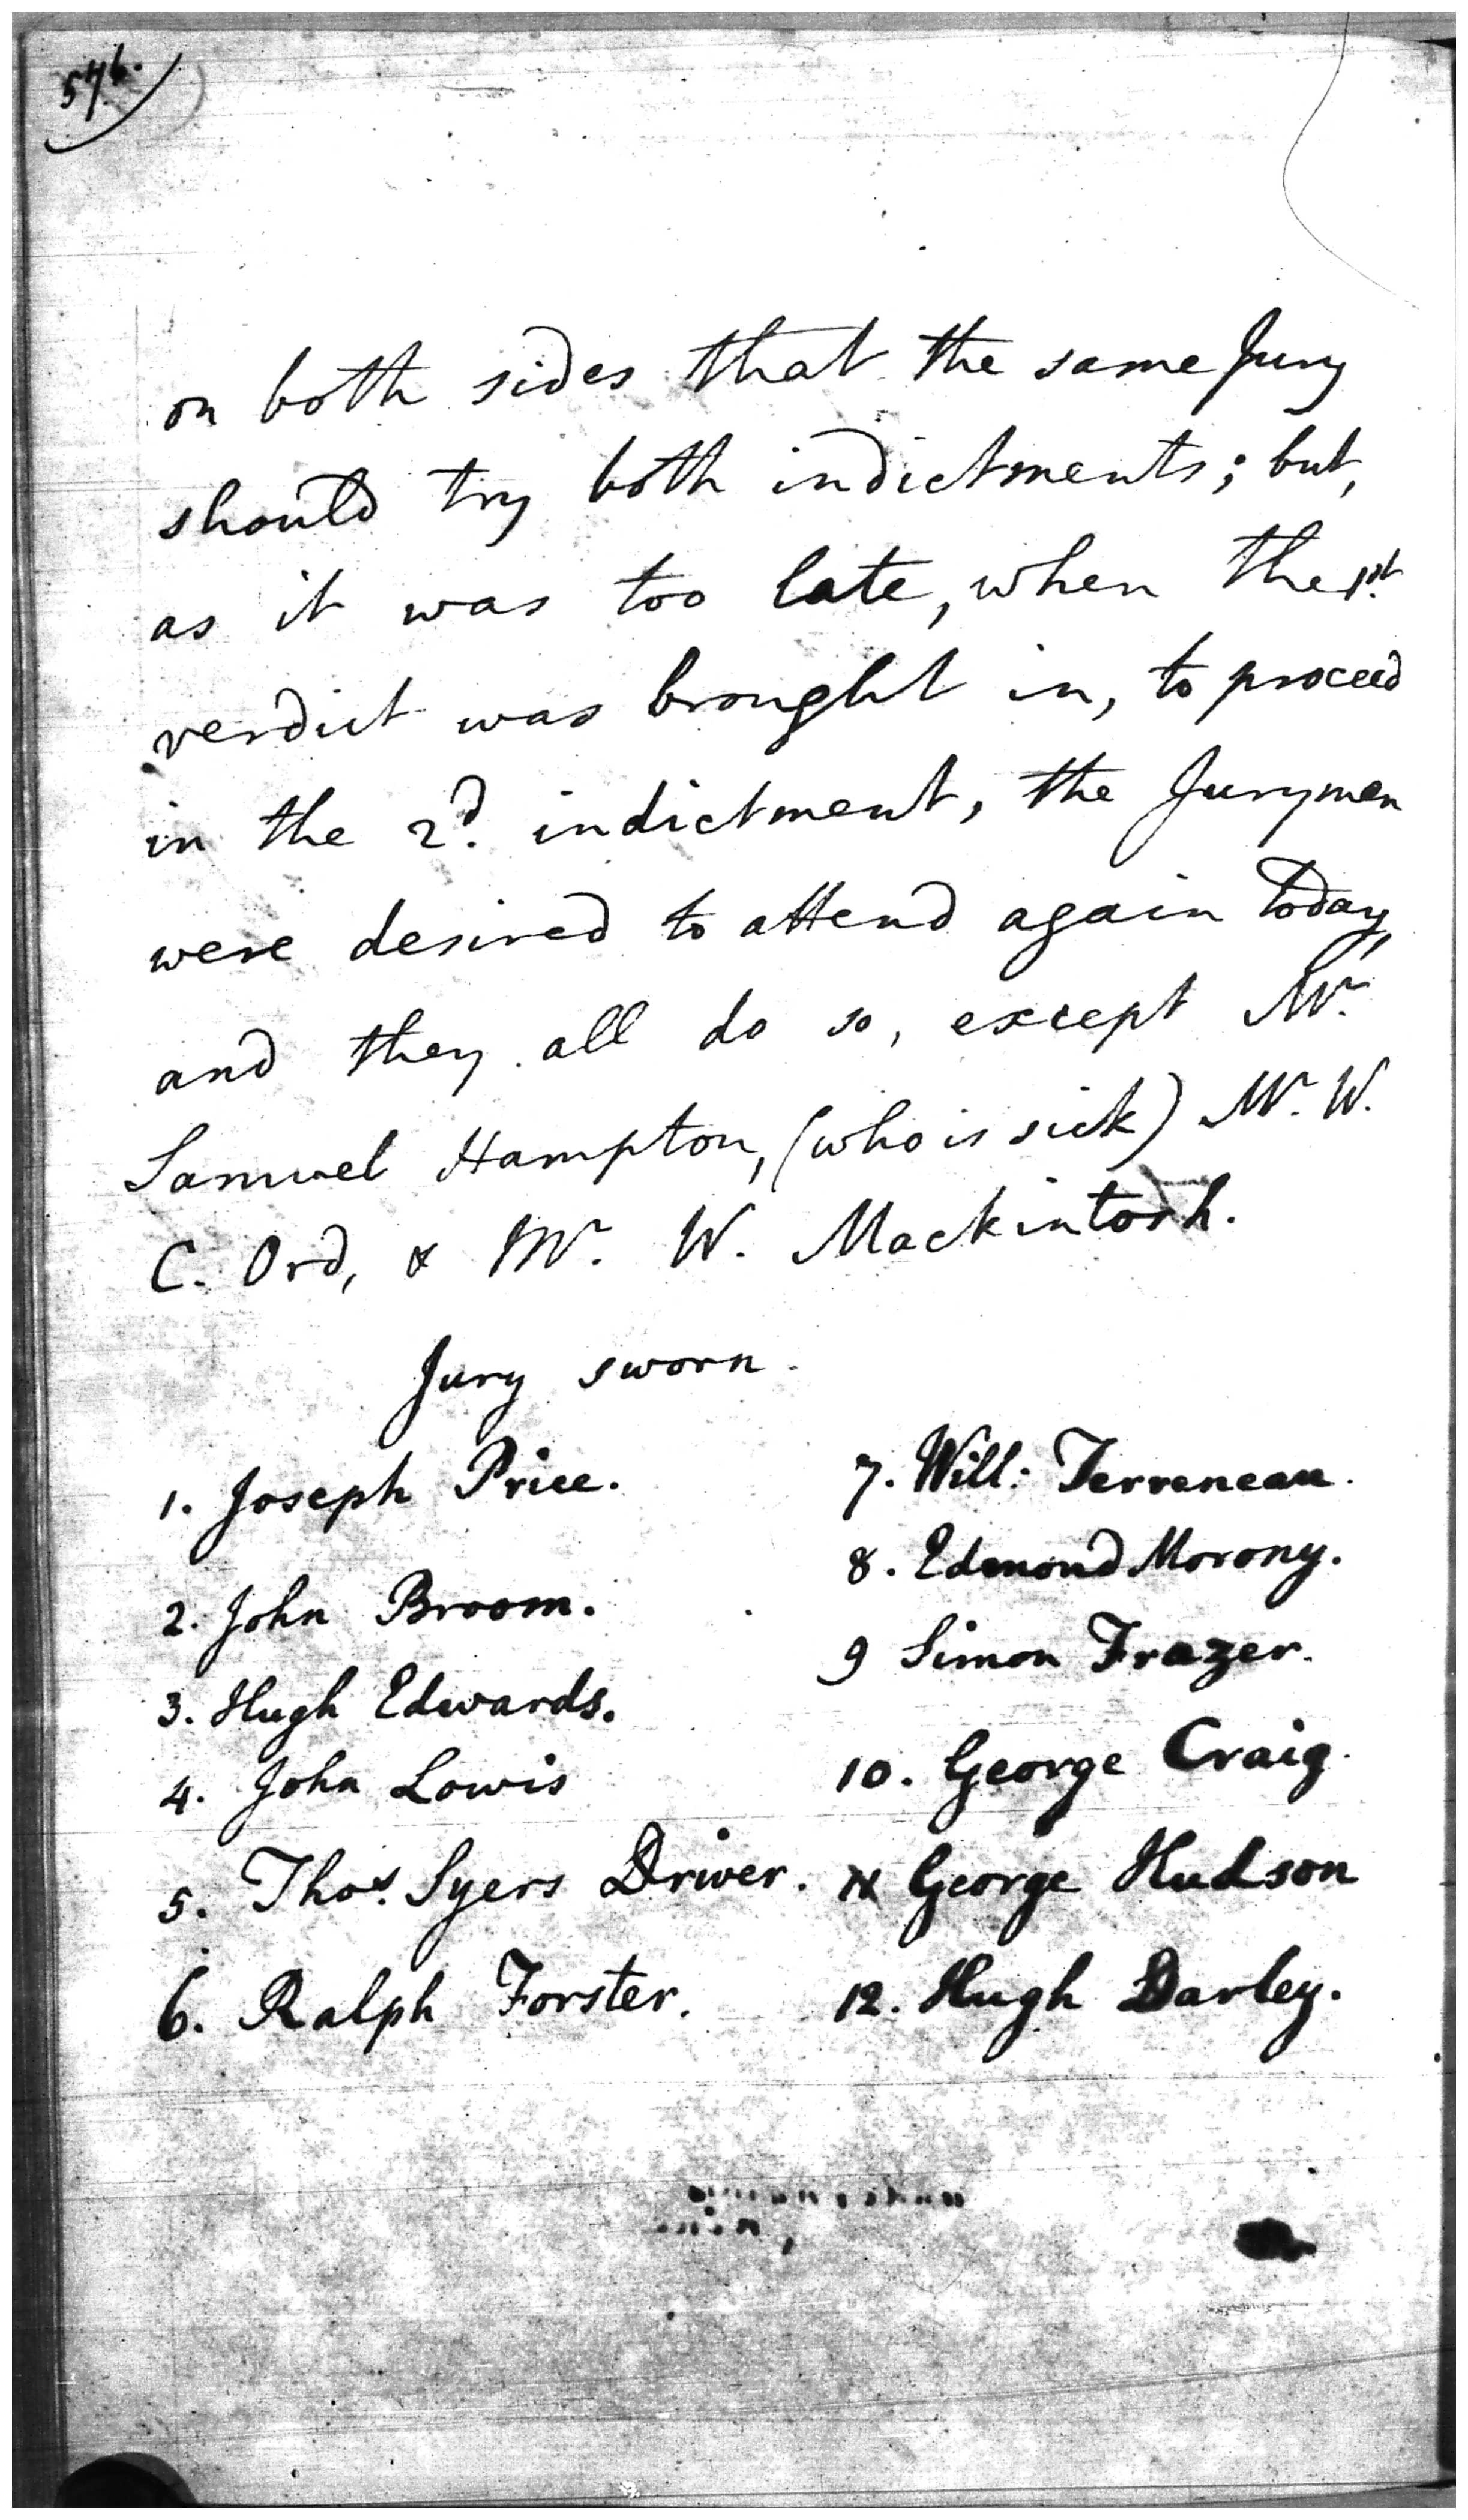 576.
on both sides that the same Jury
should try both indictments; but,
as it was too late, when the 1st.
verdict was brought in, to proceed
in the 2d. indictment, the Jurymen
were desired to attend again today,
and they all do so, except Mr.
Samuel Hampton, (who is sick) Mr. W.
C. Ord, & Mr. W. Mackintosh.
Jury sworn.
1. Joseph Price.
2. John Broom.
3. Hugh Edwards.
4. John Lowis
5. Thos. Syers Driver.
6. Ralph Forster.
7. Will: Terreneau.
8. Edmond Morony.
9 Simon Frazer.
10. George Craig.
11 George Hudson
12. Hugh Darley.